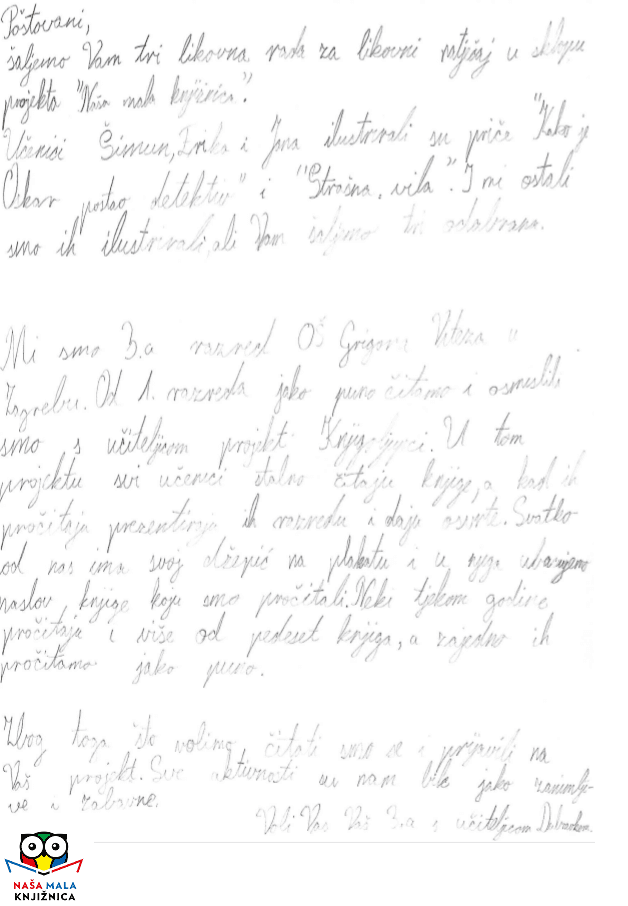 Poštovani,
šaljemo Vam tri likovna rada za likovni natječaj u sklopu
projekta "Naša mala knjižnica".
Učenici Šimun, Erika i Jana ilustrirali su priče "Kako je
Oskar postao detektiv" i "Strašna vila". I mi ostali
smo ih ilustrirali, ali Vam šaljemo tri odabrana.
Mi smo 3.a razred OŠ Grigora Viteza u
Zagrebu. Od 1. razreda jako puno čitamo i osmislili
smo s učiteljicom projekt Knjigoljupci. U tom
projektu svi učenici stalno čitaju knjige, a kad ih
pročitaju prezentiraju ih razredu i daju osvrte. Svatko
od nas ima svoj džepić na plakatu i u njega ubacujemo
naslov knjige koju smo pročitali. Neki tijekom godine
pročitaju i više od pedeset knjiga, a zajedno ih
pročitamo jako puno.
Zbog toga što volimo čitati smo se i prijavili na
Vaš projekt. Sve aktivnosti su nam bile jako zanimlji-
ve i zabavne.
Voli Vas Vaš 3.a s učiteljicom
NAŠA MALA
KNJIŽNICA